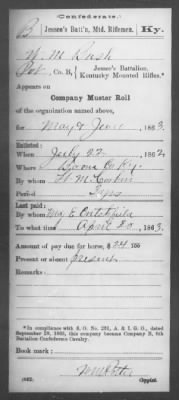 (Confederate.)
B | Jessee's Batt'n, Mtd. Riflemen. | Ky.
W. M. Rush
Pvt, Co. B, Jessee's Battalion, Kentucky Mounted Rifles.*
Appears on
Company Muster Roll
of the organization named above,
for May & June, 1863.
Enlisted:
When July 22, 1862
Where Boone Co Ky.
By whom W. M. Corbin
Period 3 yrs
Last paid:
By whom Maj E
To what time April 30, 1863.
Amount of pay due for horse, $ 24 100
Present or absent present
Remarks:
*In compliance with S. O. No. 231, A. & I. G. O., dated
September 29, 1863, this company became Company B, 6th
Battalion Confederate Cavalry.
Book mark:
(642) Copyist.